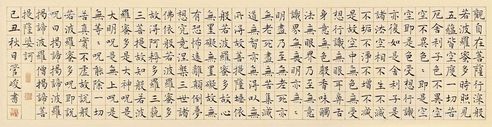 觀自在菩薩行深般
若波羅蜜多時照見
五蘊皆空度一切苦
厄舍利子色不異空
空不異色色即是空
空即是色受想行識
亦復如是舍利子是
諸法空相不生不滅
不垢不淨不增不減
是故空中無色無受
想行識無眼耳鼻舌
身意無色聲香味觸
法無眼界乃至無意
識界無無明亦無無
明盡乃至無老死亦
無老死盡無苦集滅
道無智亦無得以無
所得故菩提薩埵依
般若波羅蜜多故心
無罣礙無罣礙故無
有恐怖遠離顛倒夢
想究竟涅槃三世諸
佛依般若波羅蜜多
故得阿耨多羅三藐
三菩提故知般若波
羅蜜多是大神咒是
大明咒是無上咒是
無等等咒能除一切
苦真實不虛故說般
若波羅蜜多咒即說
咒曰揭諦揭諦波羅
揭諦波羅僧揭諦菩
提薩婆訶
己丑秋日管峻書